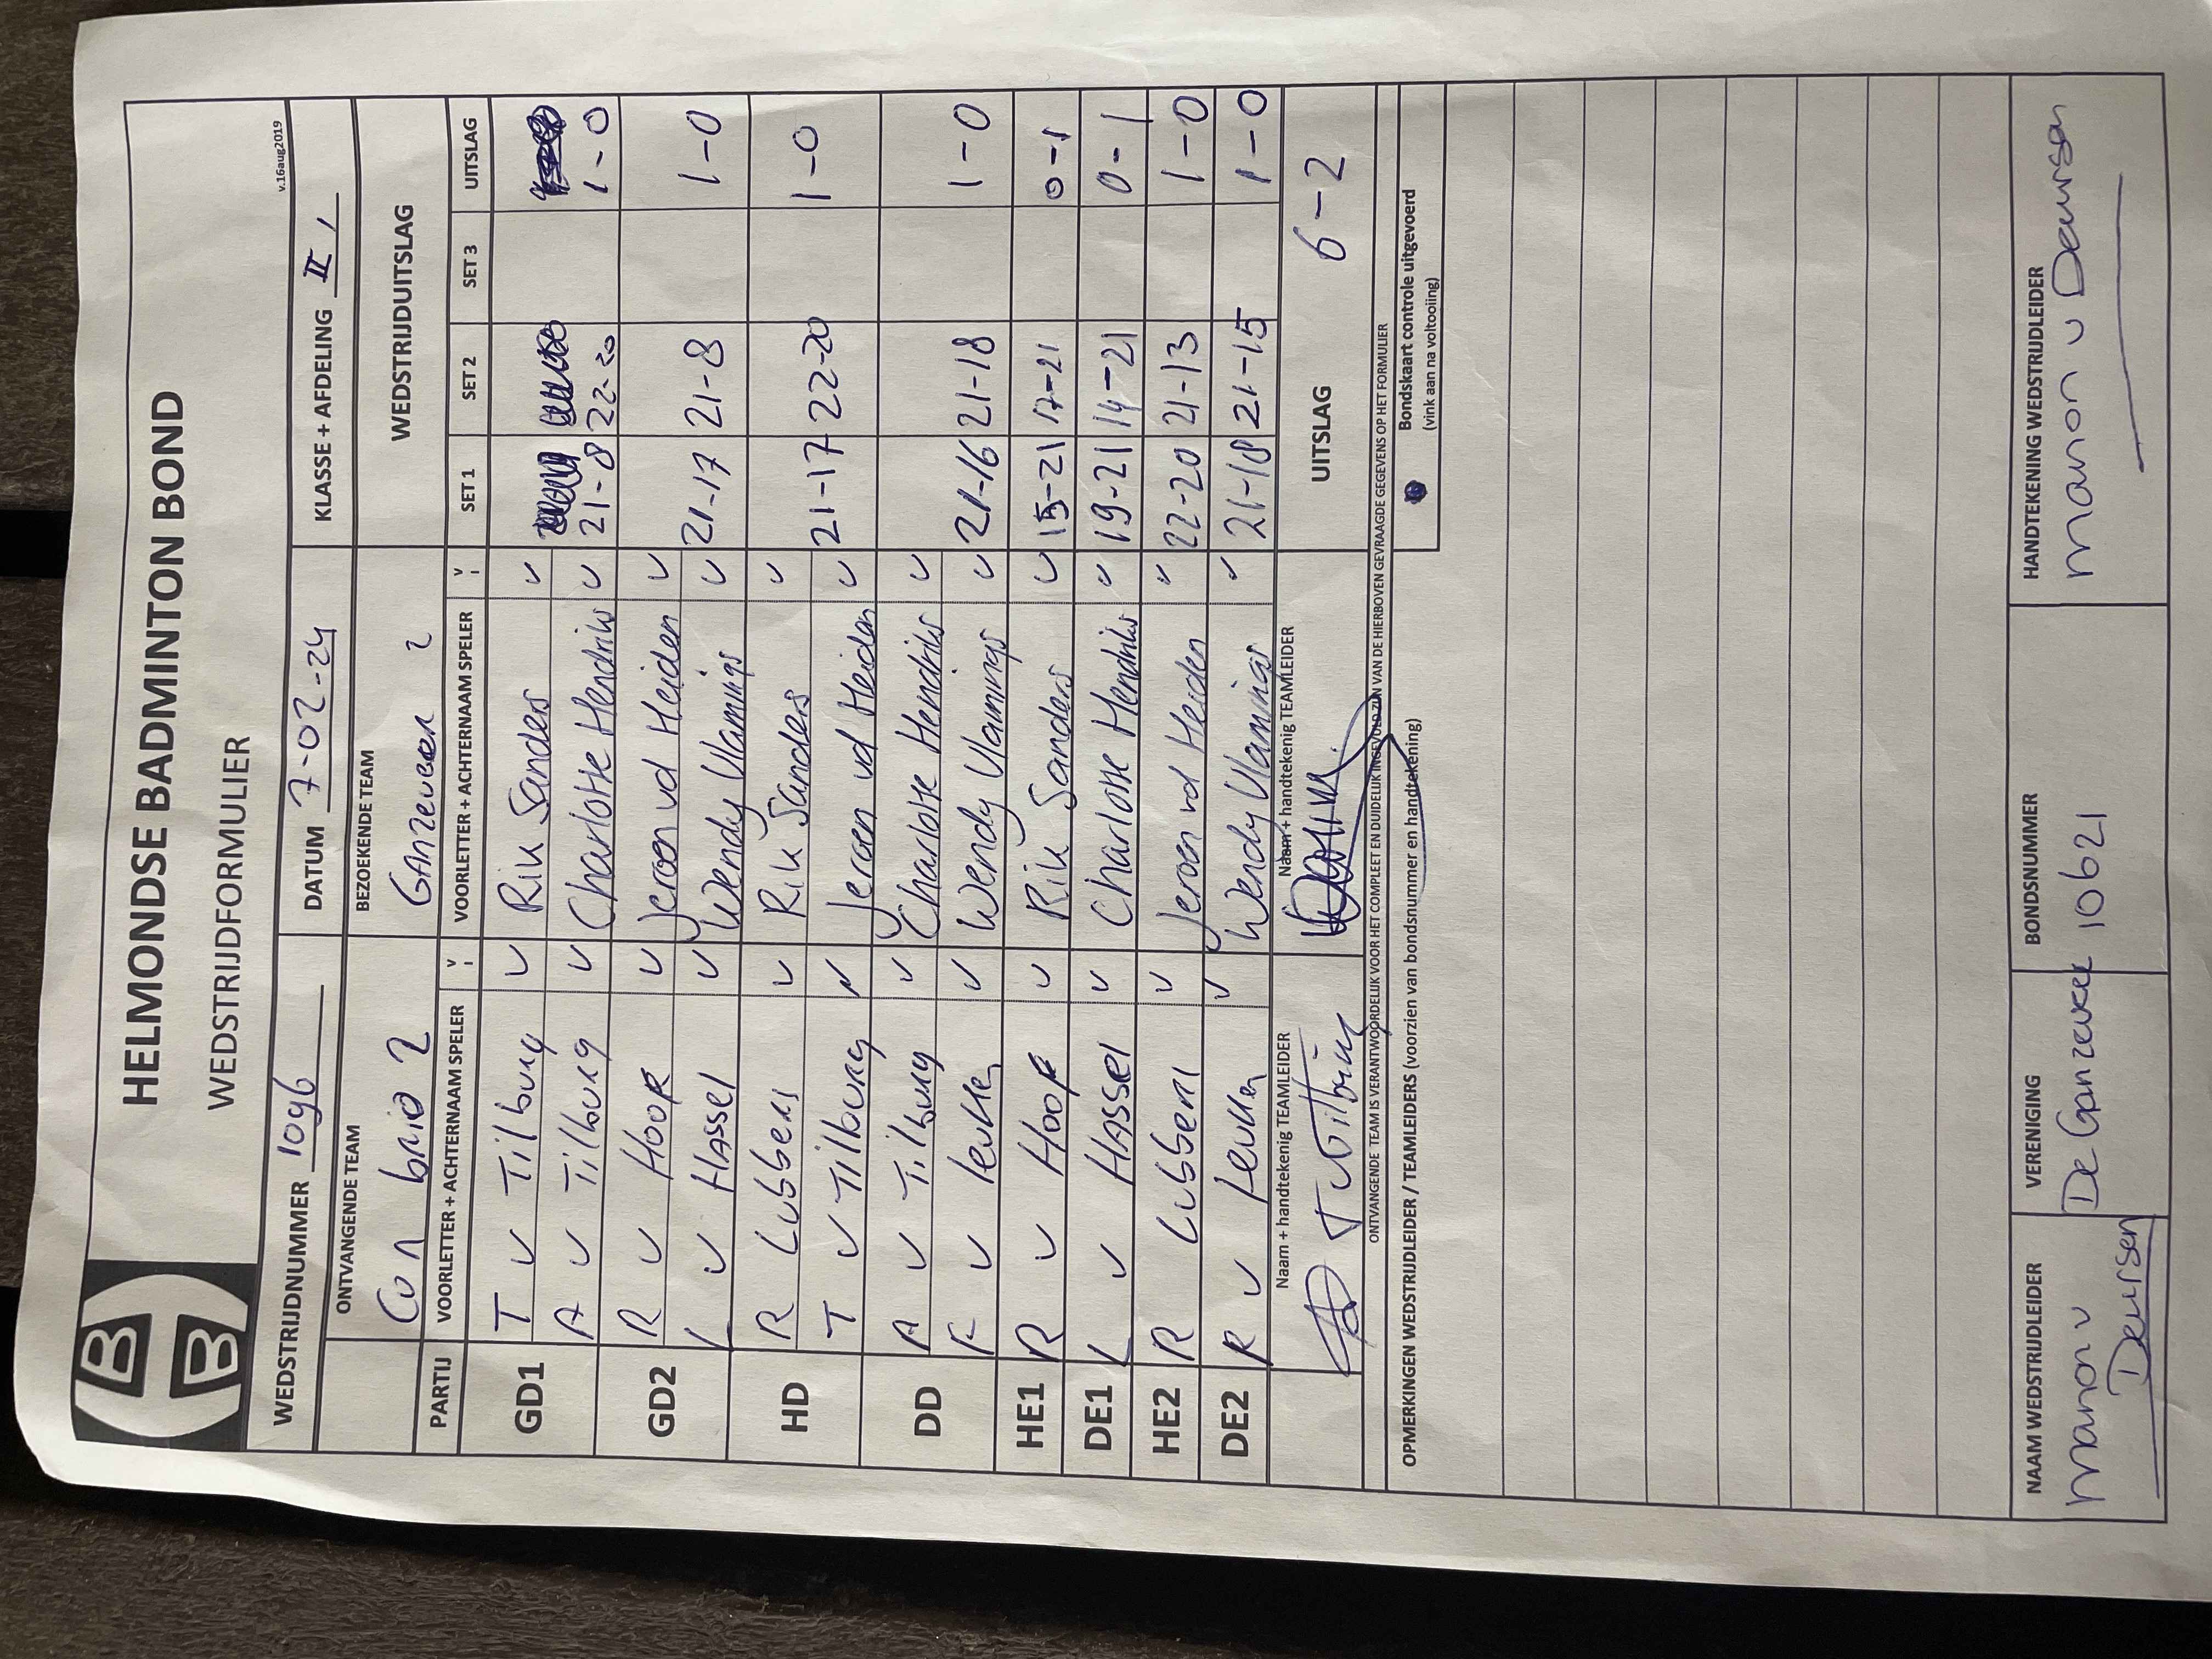 HBB
HELMONDSE BADMINTON BOND
WEDSTRIJDFORMULIER
v.16aug2019
WEDSTRIJDNUMMER 1096 DATUM 7-02-24 KLASSE + AFDELING II
ONTVANGENDE TEAM BEZOEKENDE TEAM WEDSTRIJDUITSLAG
Con brio 2 GAnzeveer 2
PARTIJ VOORLETTER + ACHTERNAAM SPELER V VOORLETTER + ACHTERNAAM SPELER V SET 1 SET 2 SET 3 UITSLAG
GD1 T v Tilburg v Rik Sanders v
A v Tilburg v Charlotte Hendriks v 21-8 22-20 1-0
GD2 R v Hoof v Jeroen vd Heiden v
L v Hassel v Wendy Vlamings v 21-17 21-8 1-0
HD R Lubbers v Rik Sanders v
T v Tilburg v Jeroen vd Heiden v 21-17 22-20 1-0
DD A v Tilburg v Charlotte Hendriks v
v v Wendy Vlamings v 21-16 21-18 1-0
HE1 R v Hoof v Rik Sanders v 15-21 17-21 0-1
DE1 L v Hassel v Charlotte Hendriks v 19-21 14-21 0-1
HE2 R Lubbers v Jeroen vd Heiden v 22-20 21-13 1-0
DE2 v v Wendy Vlamings v 21-18 21-15 1-0
Naam + handtekenig TEAMLEIDER Naam + handtekenig TEAMLEIDER UITSLAG 6-2
ONTVANGENDE TEAM IS VERANTWOORDELIJK VOOR HET COMPLEET EN DUIDELIJK INGEVULD ZIJN VAN DE HIERBOVEN GEVRAAGDE GEGEVENS OP HET FORMULIER
OPMERKINGEN WEDSTRIJDLEIDER / TEAMLEIDERS (voorzien van bondsnummer en handtekening)
Bondskaart controle uitgevoerd
(vink aan na voltooiing)
NAAM WEDSTRIJDLEIDER VERENIGING BONDSNUMMER HANDTEKENING WEDSTRIJDLEIDER
Manon v Deursen De Ganzeveer 10621 Manon v Deursen